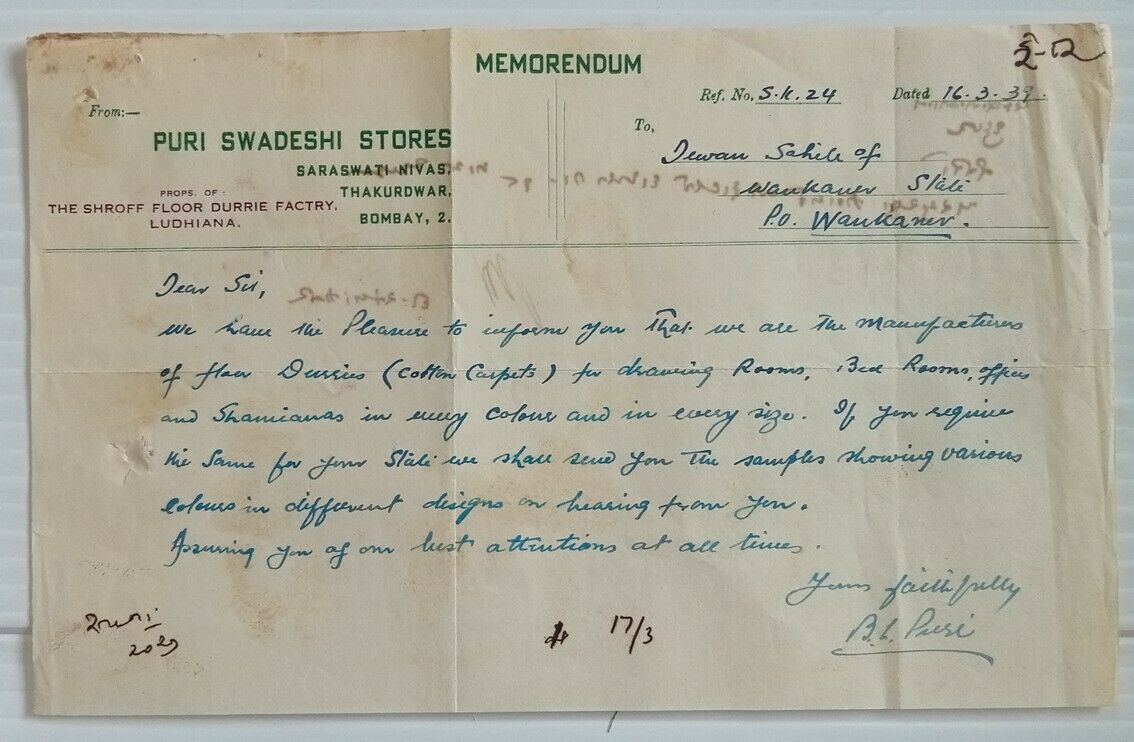 MEMORENDUM
Ref. No. S.K.24 Dated 16.3.39.
From:—
To,
PURI SWADESHI STORES
SARASWATI NIVAS,
THAKURDWAR,
BOMBAY, 2.
PROPS. OF :
THE SHROFF FLOOR DURRIE FACTRY.
LUDHIANA.
Dewan Sahib of
Wankaner State
P.O. Wankaner.
Dear Sir,
We have the Pleasure to inform you that we are the manufacturers
of floor Durries (Cotton Carpets) for drawing Rooms, Bed Rooms, offices
and Shamianas in every colour and in every size. If you require
the same for your State we shall send you the samples showing various
colours in different disigns on hearing from you.
Assuring you of our best attentions at all times.
Yours faithfully
B.L. Puri
17/3